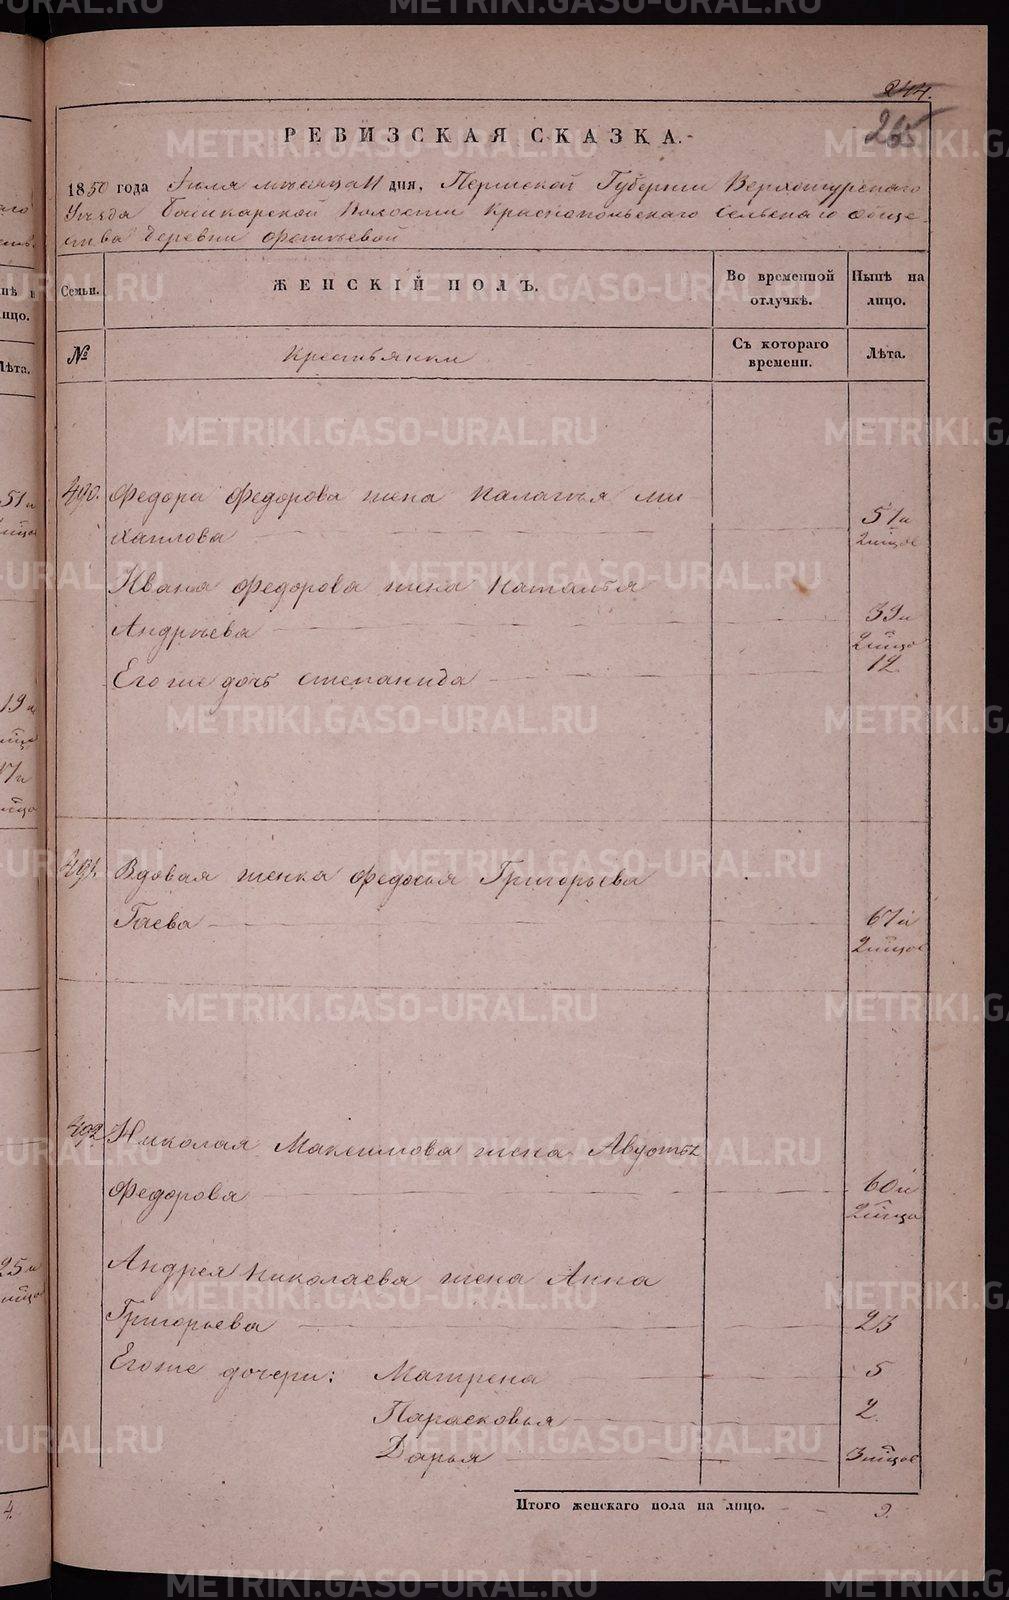 244.
265
РЕВИЗСКАЯ СКАЗКА.
1850 года Іюля мѣсяца 11 дня, Пермской Губерніи Верхотурскаго
Уѣзда Башкарской Волости Краснопольскаго Сельскаго Обще-
ства Деревни Фотѣевой
Семьи.
ЖЕНСКІЙ ПОЛЪ.
Во временной отлучкѣ.
Нынѣ на лицо.
№
Крестьянки
Съ котораго времени.
Лѣта.
490. Федора Федорова жена Палагѣя Ми-
хаилова 51 и
2мѣсяц
Ивана Федорова жена Наталья
Андрѣева 39 и
2мѣсяц
Егоже дочь Степанида 12
491. Вдовая женка Федосья Григорьева
Гаева 67 и
2мѣсяц
492 Николая Максимова жена Авдотья
Федорова 60 и
2мѣсяц
Андрея Николаева жена Анна
Григорьева 23
Егоже дочери: Матрена 5
Парасковья 2
Дарья 3мѣсяц
Итого женскаго пола на лицо. 9.
METRIKI.GASO-URAL.RU